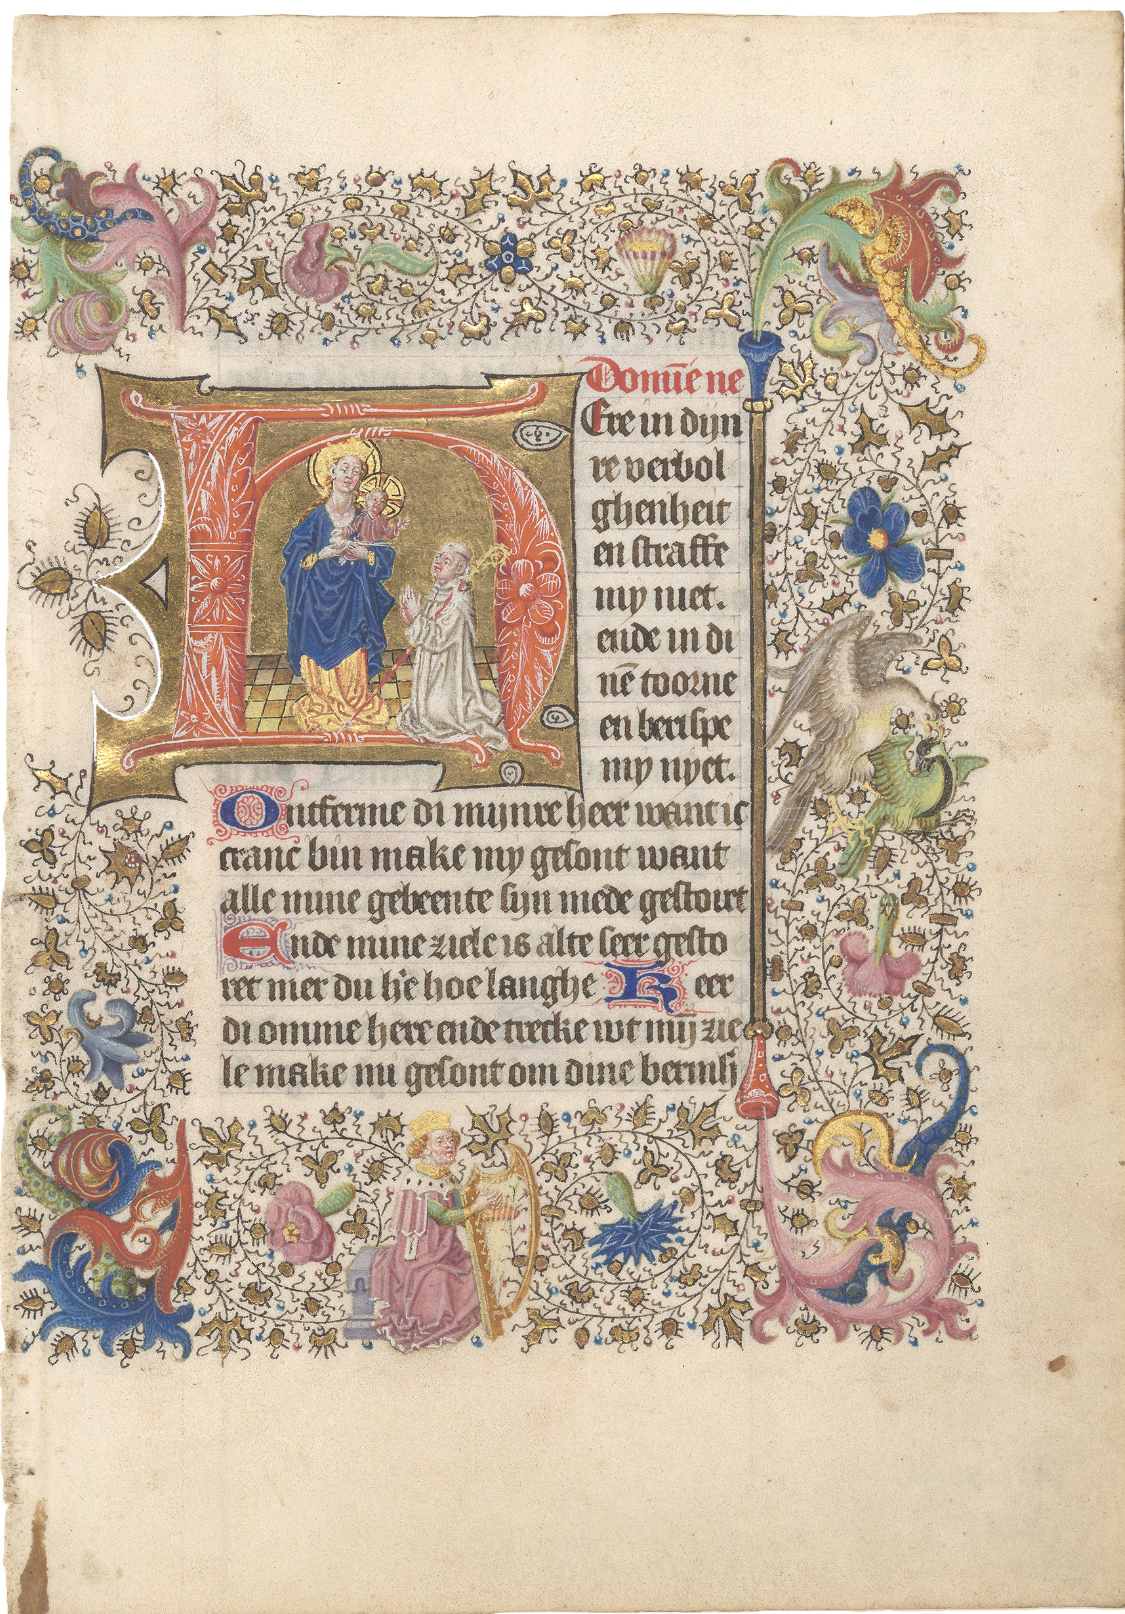 H
Domīe ne
Ere in dijn
re verbol
ghenheit
en straffe
my niet.
ende in di
nē toorne
en berispe
my nyet.
Ontferme di mijnre heer want ic
cranc bin make my gesont want
alle mine gebeente sijn mede gestoirt
Ende mine ziele is alte seer gesto
ret mer du hē hoe langhe Keer
di omme here ende trecke wt mijn zie
le make mi gesont om dine bermh